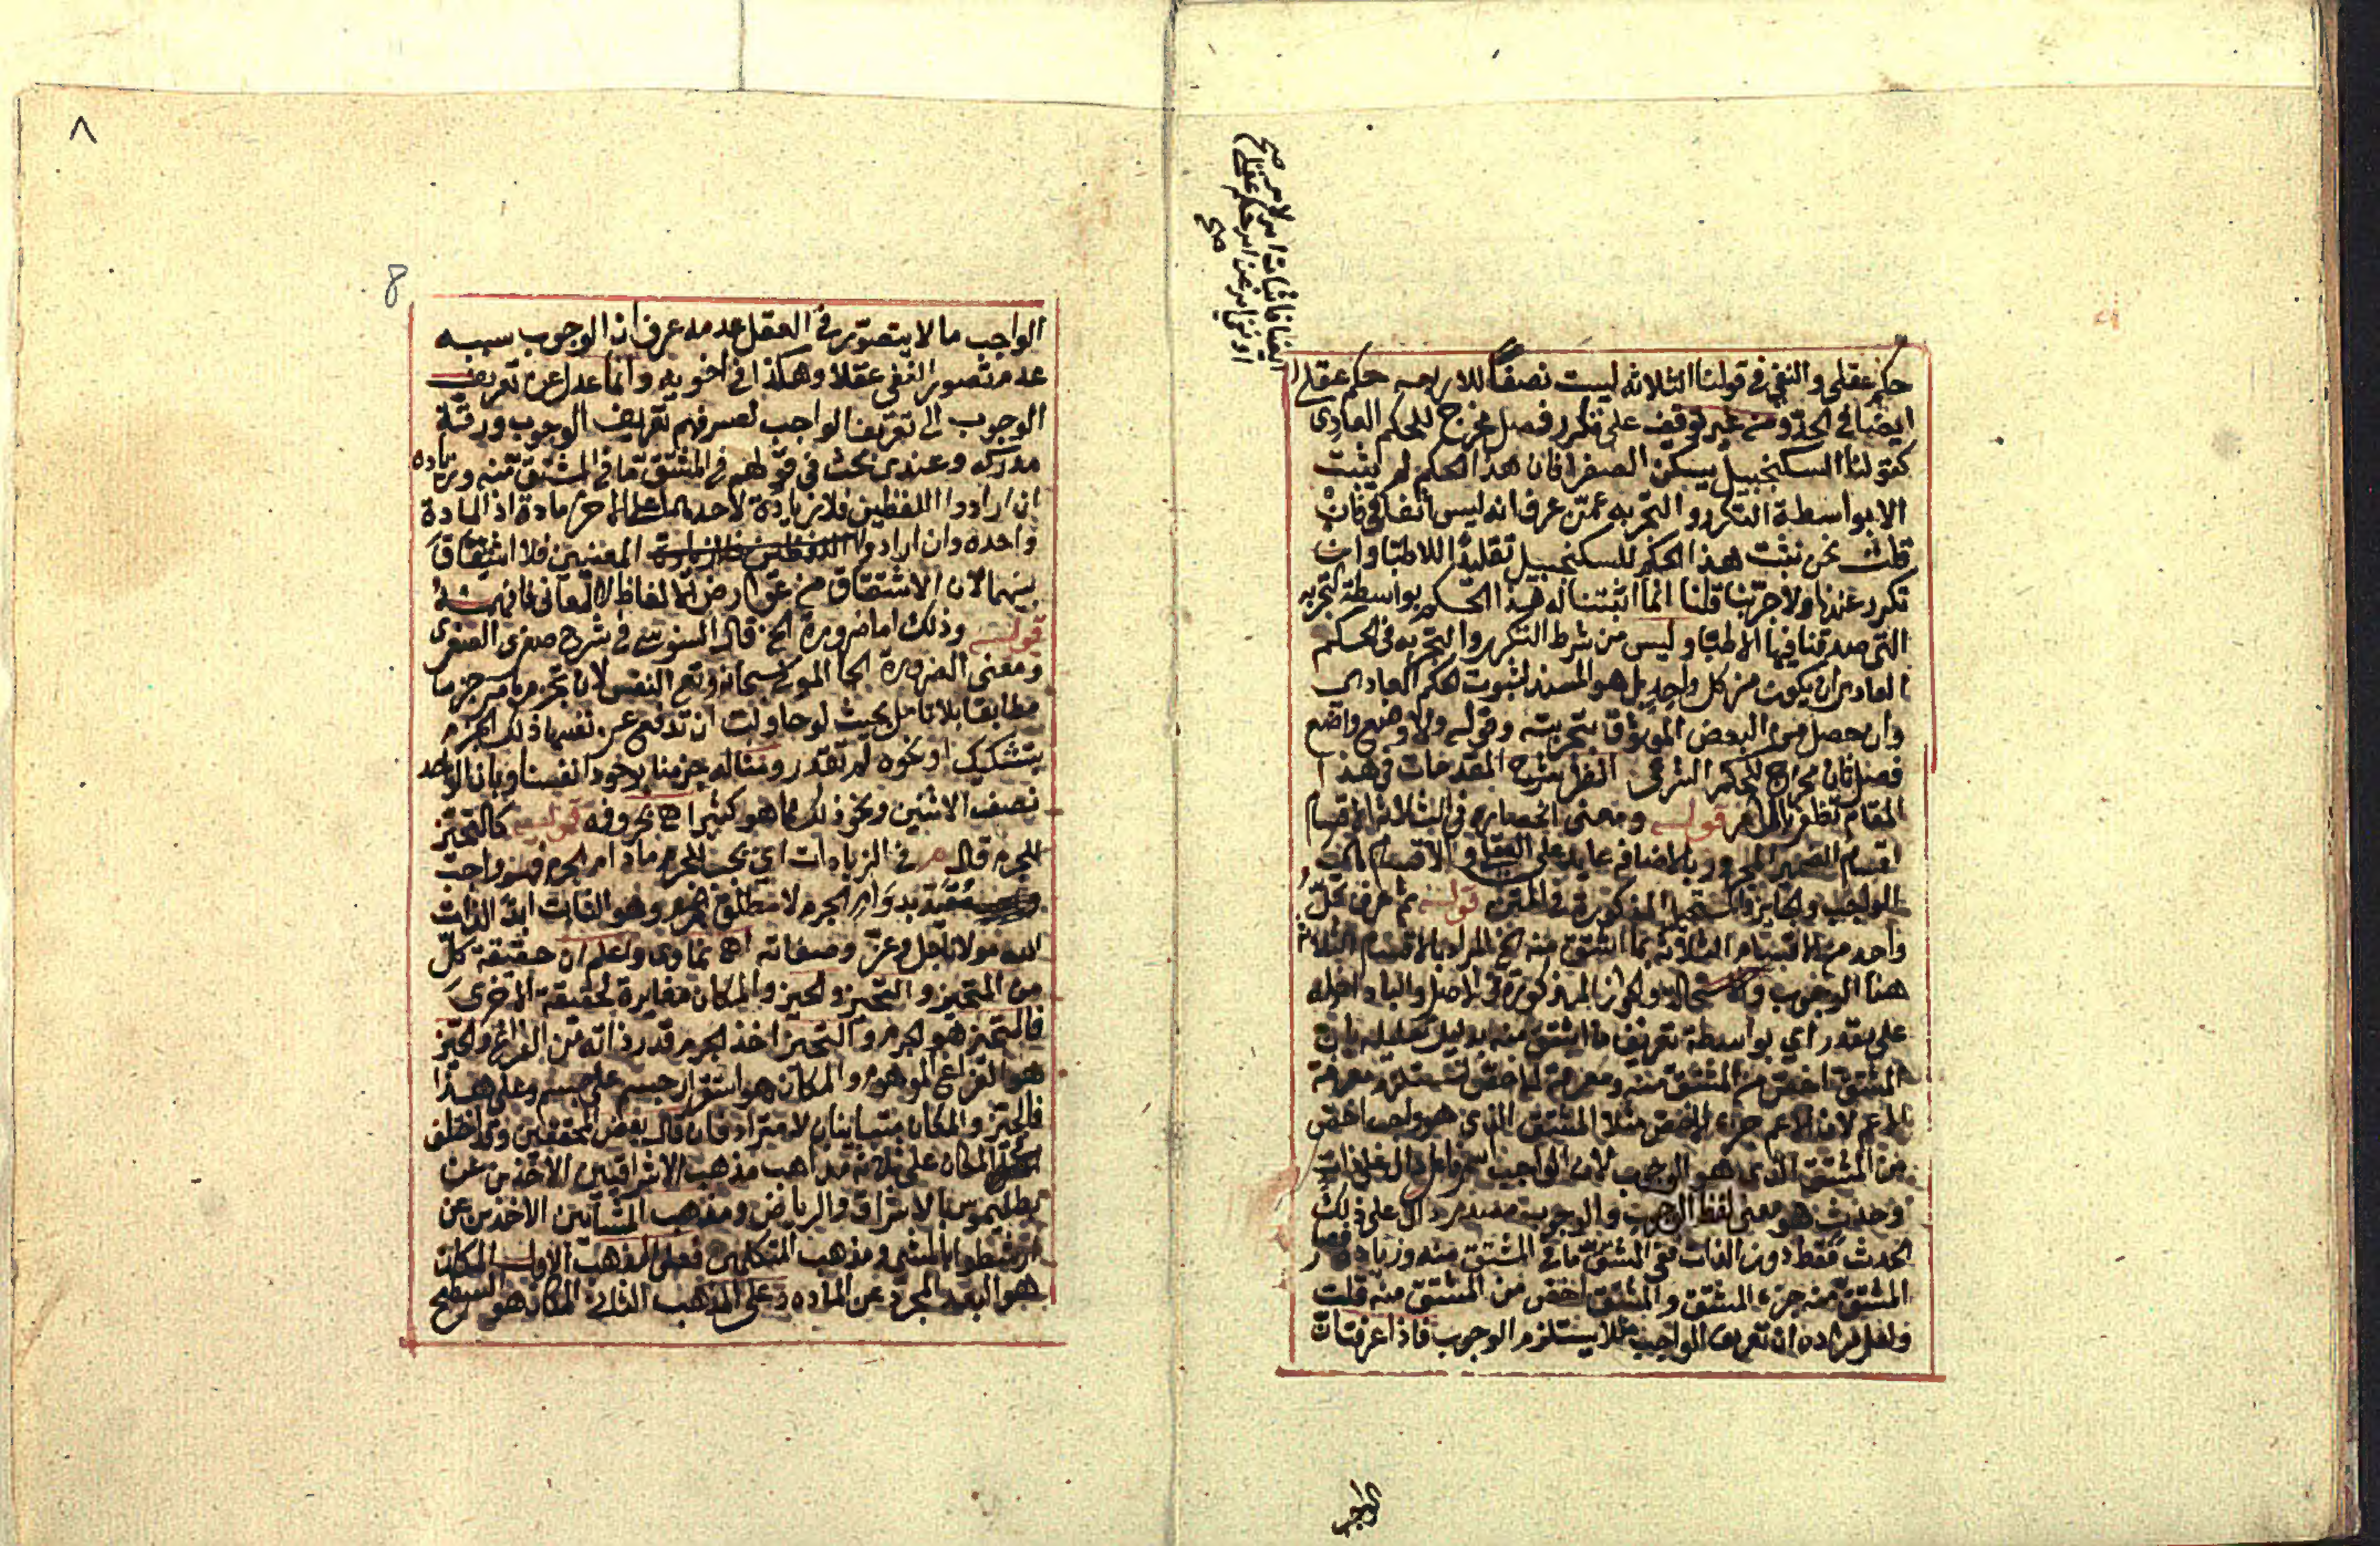 حكم عقلي والنفي في قولنا الثلاثة ليست نصفا للاربعه حكم عقلي
ايضا في الحد ومن غير توقف على تكرر فصل مخرج للحكم العادي
كقولنا السكنجبيل يسكن الصفرا فان هذا الحكم لم يثبت
الا بواسطة التكرر والتجربه ممن عرف انه ليس اتفاقي فان
قلت نحن نثبت هذا الحكم للسكنجبيل تقليدا للاطبا وان
تكرر عندنا ولا جربنا قلنا انما اثبتنا له هذا الحكم بواسطة التجربه
التي صدقنا فيها الاطبا وليس من شرط التكرر والتجربه في الحكم
العادي ان يكون من كل واحد بل هو المستند لثبوت هكم العادي
وان حصل من البعض الموثوق بتجربته وقوله ولا وضع واضع
فصل ثان مخرج للحكم الشرعي انظر شرح المقدمات في هذا
المقام تظفر بالمرام قوله ومعنى انحصاره في الثلاثة الاقسام
اقسام الضمير المجرور بالاضافه عايد على والاقسام بالجر
الواجب والجايز والمستحيل المذكورة في المتن قوله ثم عرف كل
واحد من الاقسام الثلاثه بما اشتق منه الخ المراد بالاقسام الثلاثه
هنا الوجوب والاستحاله والجواز المذكورة في الاصل والباء داخله
على مقدر اي بواسطة تعريف ما اشتق منه بدليل تعليله بان
المشتق اخص من المشتق منه ومعرفة الاخص تستلزم معرفة
الاعم لان الاعم جزء الاخص مثلا المشتق الذي هو واجب اخص
من المشتق الذي هو الوجوب لان الواجب اسم فاعل دال على ذات
وحدث هو معنى لفظ الوجوب والوجوب مصدر دال على ذلك
الحدث فقط دون الذات ففي المشتق ما في المشتق منه وزيادة فصار
المشتق منه جزء المشتق والمشتق اخص من المشتق منه قلت
ولعل مراده ان تعريف الواجب مثلا يستلزم الوجوب فاذا عرفت ان
الواجب
٨
8
الواجب ما لا يتصور في العقل عدمه عرف ان الوجوب سببه
عدم تصور النفي عقلا وهكذا في اخويه وانما عدل عن تعريف
الوجوب الى تعريف الواجب لعسر فهم تعريف الوجوب ورقة
مدركه وعندي بحث في قولهم في المشتق ما في المشتق منه وزياده
ان ارادوا اللفظين فلا زيادة لاحدهما على الاخر مادة اذ المادة
واحده وان ارادوا المعنيين فلا اشتقاق
بينهما لان الاشتقاق من عوارض الالفاظ لا المعاني فافهمه
قوله وذلك اما ضرورة الخ قال السنوسي في شرح صغرى الصغرى
ومعنى الضرورة الجا المولى سبحانه وتع النفس لان تجزم بامر جزما
مطابقا بلا تامل بحيث لو حاولت ان تدفع عن نفسها ذلك الجزم
بتشكيك او نحوه لم تقدر ومثاله جزمنا بوجود انفسنا وبان الواحد
نصف الاثنين ونحو ذلك مما هو كثير اه بحروفه قوله كالتحيز
للجرم قال م في الزيادات اي يجب للجرم مادام الجرم فهو واجب
مقيد بدوام الجرم لا مطلق وهو الثابت ابدا لذات
الله مولانا جل وعز وصفاته اه واعلم ان حقيقة كل
من المتحيز والتحيز والحيز والمكان مغايرة لحقيقة الاخرى
فالمتحيز هو الجرم والتحيز اخذ الجرم قدر ذاته من الفراغ والحيز
هو الفراغ الموهوم والمكان هو استقرار جسم على جسم وعلى هذا
فالحيز والمكان متباينان لا مترادفان قال بعض المحققين وقد اختلف
المكان على ثلاثة مذاهب مذهب الاشراقيين الاخذين عن
بطليموس بالاشراق والرياض ومذهب المشائين الاخذين عن
ارسطوا بالمشي ومذهب المتكلمين فعلى المذهب الاول المكان
هو البعد المجرد عن الماده وعلى المذهب الثاني المكان هو السطح